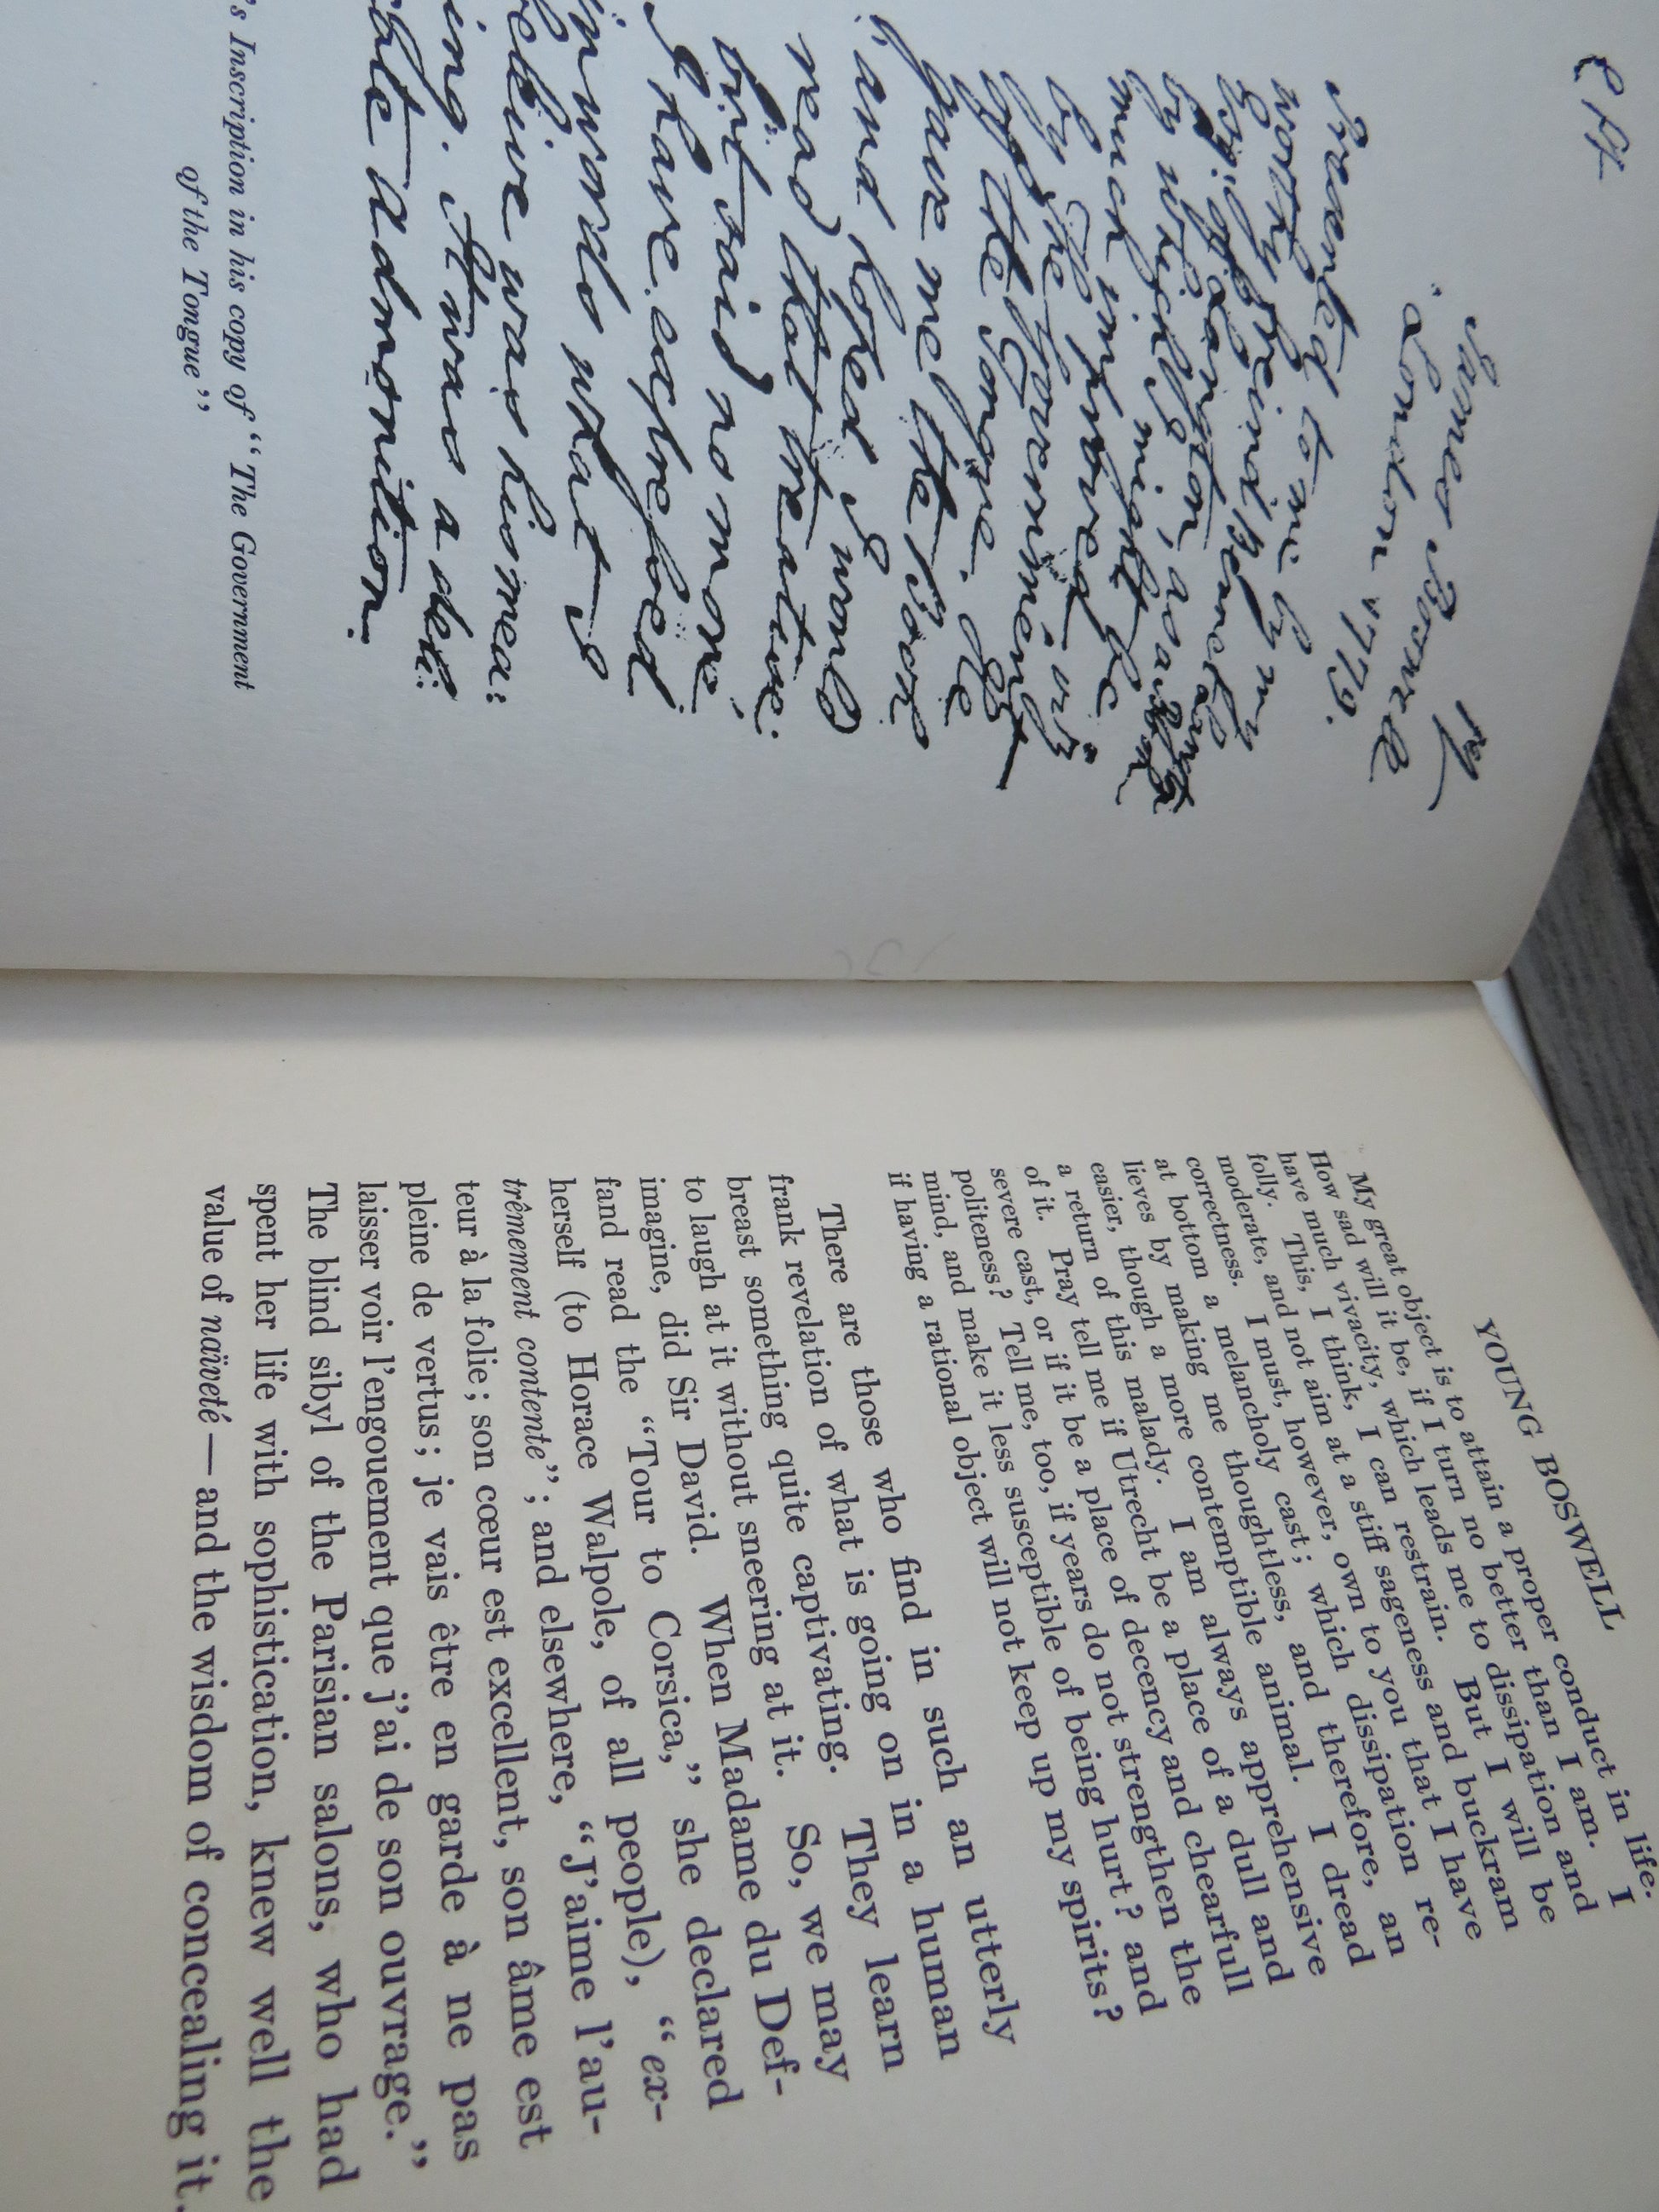 James Boswell
London 1779.
Presented to me by my
worthy friend Bennet
Langton, as a book
by which I might be
much improved, viz.
by the Government
of the Tongue. He
gave me the Book
and hoped I would
read that treatise;
but said no more.
I have expressed
in words what I
believe was his mea:
ing. It was a deli:
cate admonition.
's Inscription in his copy of "The Government
of the Tongue"
YOUNG BOSWELL
My great object is to attain a proper conduct in life.
How sad will it be, if I turn no better than I am. I
have much vivacity, which leads me to dissipation and
folly. This, I think, I can restrain. But I will be
moderate, and not aim at a stiff sageness and buckram
correctness. I must, however, own to you that I have
at bottom a melancholy cast; which dissipation re-
lieves by making me thoughtless, and therefore, an
easier, though a more contemptible animal. I dread
a return of this malady. I am always apprehensive
of it. Pray tell me if Utrecht be a place of a dull and
severe cast, or if it be a place of decency and chearfull
politeness? Tell me, too, if years do not strengthen the
mind, and make it less susceptible of being hurt? and
if having a rational object will not keep up my spirits?
There are those who find in such an utterly
frank revelation of what is going on in a human
breast something quite captivating. They learn
to laugh at it without sneering at it. So, we may
imagine, did Sir David. When Madame du Def-
fand read the "Tour to Corsica," she declared
herself (to Horace Walpole, of all people), "ex-
trêmement contente"; and elsewhere, "J'aime l'au-
teur à la folie; son cœur est excellent, son âme est
pleine de vertus; je vais être en garde à ne pas
laisser voir l'engouement que j'ai de son ouvrage."
The blind sibyl of the Parisian salons, who had
spent her life with sophistication, knew well the
value of naïveté — and the wisdom of concealing it.